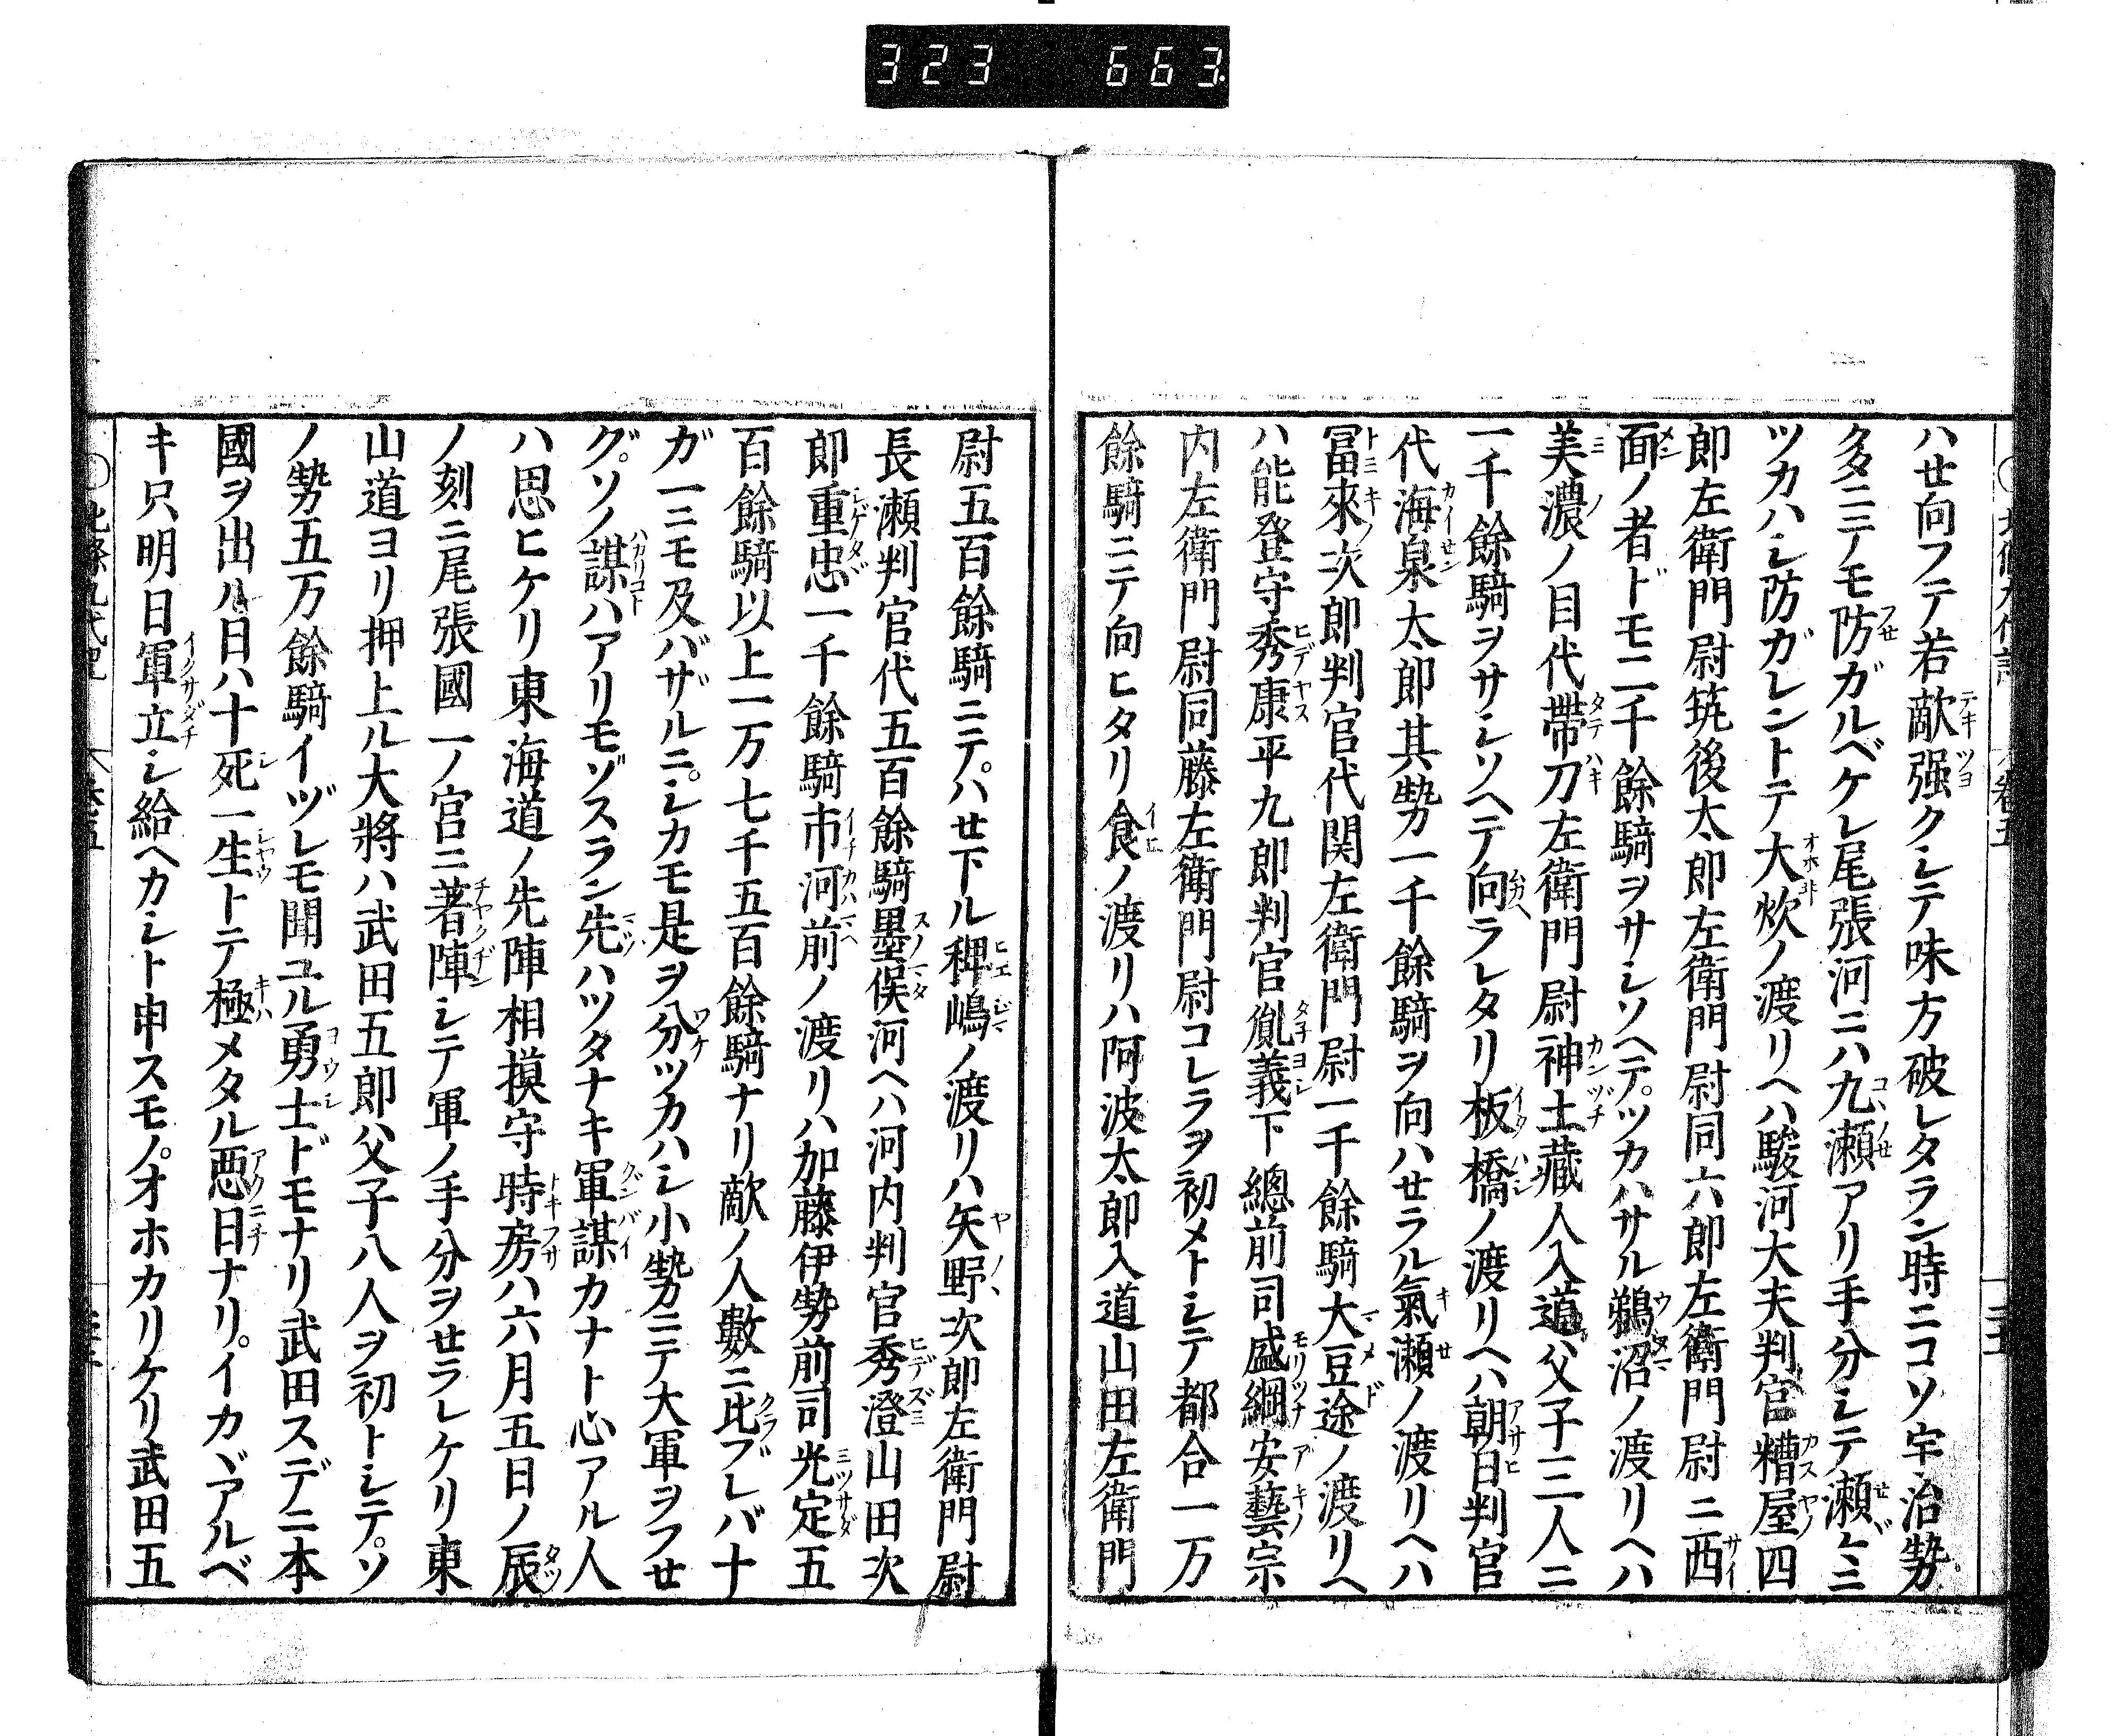 323 663
ハセ向フテ若敵强クシテ味方破レタラン時ニコソ宇治勢
多ニテモ防ガルベケレ尾張河ニハ九瀬アリ手分シテ瀬ゲミ
ツカハシ防ガレントテ大炊ノ渡リヘハ駿河大夫判官糟屋四
郎左衛門尉筑後太郎左衛門尉同六郎左衛門尉ニ西
面ノ者ドモ二千餘騎ヲサシソヘテツカハサル鵜沼ノ渡リヘハ
美濃ノ目代帶刀左衛門尉神土藏人入道父子三人ニ
一千餘騎ヲサシソヘテ向ラレタリ板橋ノ渡リヘハ朝日判官
代海泉太郎其勢一千餘騎ヲ向ハセラル氣瀬ノ渡リヘハ
冨來次郎判官代関左衛門尉一千餘騎大豆途ノ渡リヘ
ハ能登守秀康平九郎判官胤義下總前司盛綱安藝宗
内左衛門尉同藤左衛門尉コレラヲ初メトシテ都合一万
餘騎ニテ向ヒタリ食ノ渡リハ阿波太郎入道山田左衛門
尉五百餘騎ニテハセ下ル稗嶋ノ渡リハ矢野次郎左衛門尉
長瀬判官代五百餘騎墨俣河ヘハ河内判官秀澄山田次
郎重忠一千餘騎市河前ノ渡リハ加藤伊勢前司光定五
百餘騎以上一万七千五百餘騎ナリ敵ノ人數ニ比ブレバ十
ガ一ニモ及バザルニシカモ是ヲ分ツカハシ小勢ニテ大軍ヲフセ
グソノ謀ハアリモゾスラン先ハツタナキ軍謀カナト心アル人
ハ思ヒケリ東海道ノ先陣相摸守時房ハ六月五日ノ辰
ノ刻ニ尾張國一ノ宮ニ著陣シテ軍ノ手分ヲセラレケリ東
山道ヨリ押上ル大將ハ武田五郎父子八人ヲ初トシテソ
ノ勢五万餘騎イヅレモ聞ユル勇士ドモナリ武田スデニ本
國ヲ出ル日ハ十死一生トテ極メタル悪日ナリイカヾアルベ
キ只明日軍立シ給ヘカシト申スモノオホカリケリ武田五